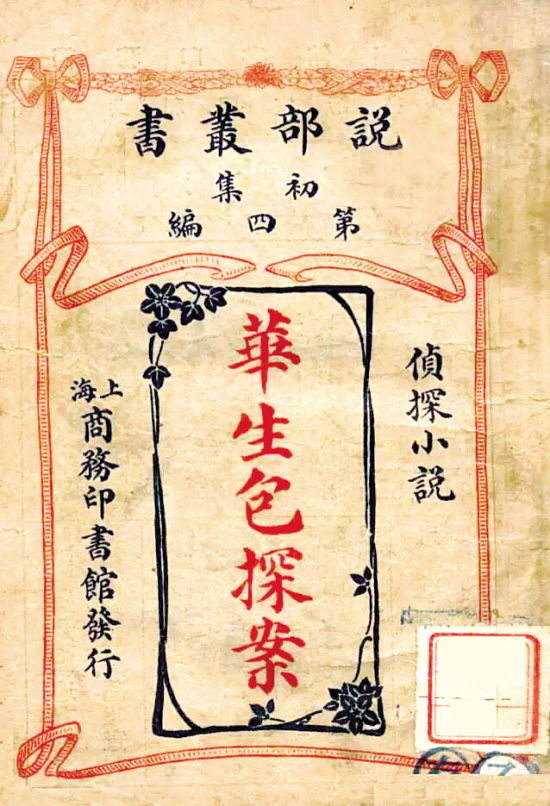 説部叢書
初集
第四編
偵探小説
華生包探案
上海
商務印書館發行